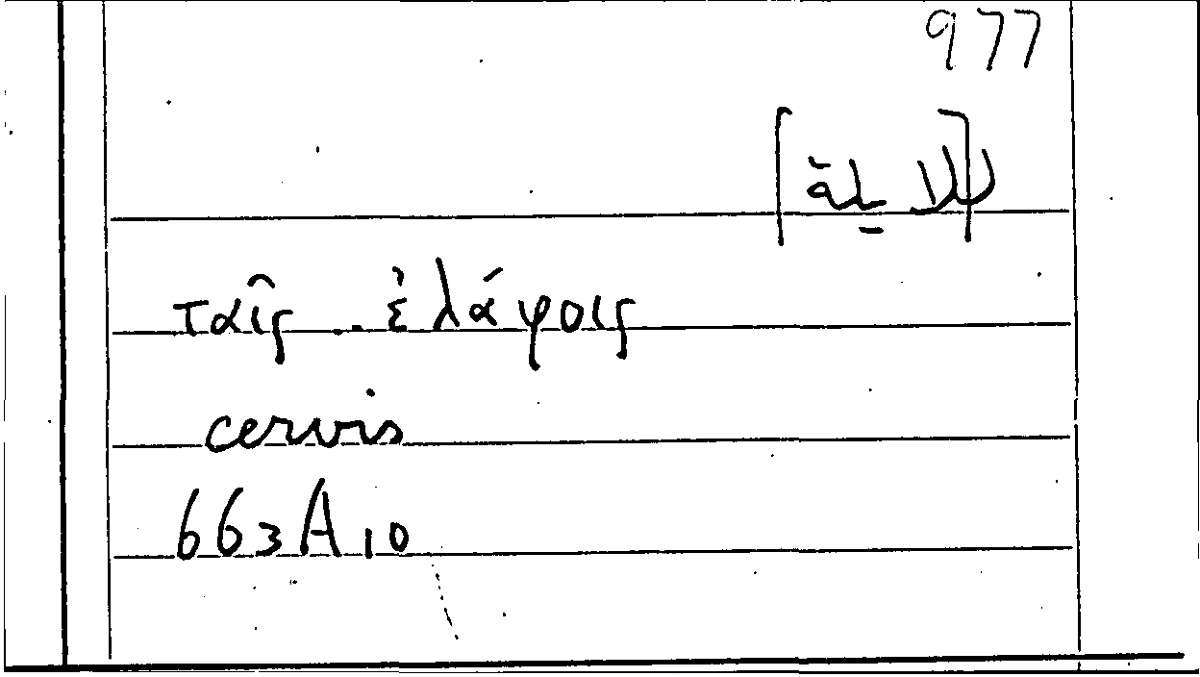 977
ل[لايلة]
ταῖς .. ἐλάφοις
cervis
663A10